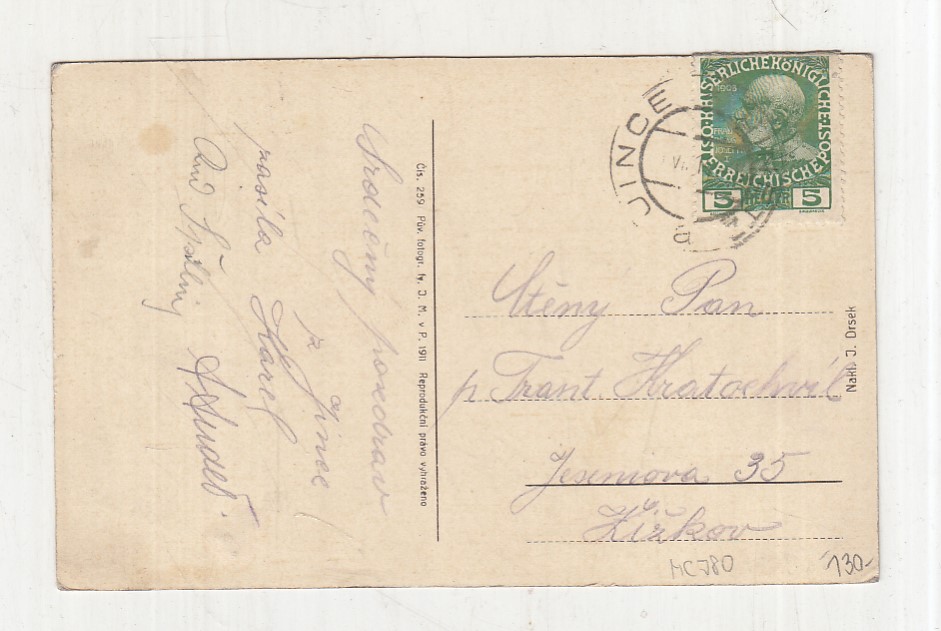 Srdečný pozdrav
z Jinec!
zasílá Karel
And
Čís. 259 Pův. fotogr. fy. J. M. v P. 1911 Reprodukční právo vyhraženo
JINCE
KAISERLICHE KÖNIGLICHE
ÖSTERREICHISCHE POST
1908
5 5
Ctěný Pan
p. Frant Kratochvíl
Jeseniova 35
Žižkov
Nakl. J. Drsek
MC 780
130-